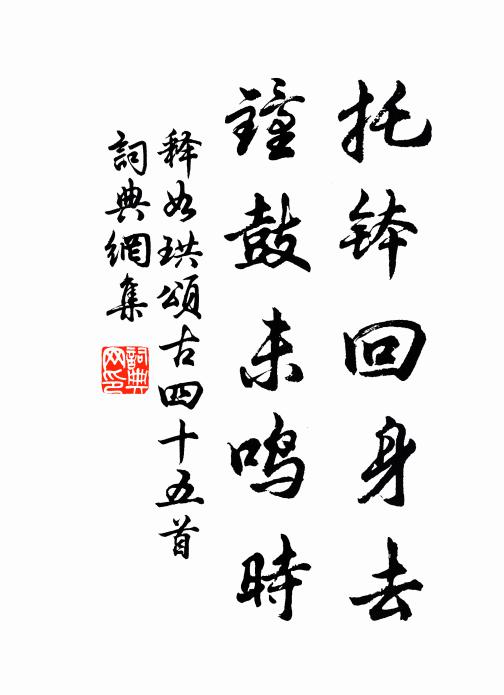 托钵回身去
鐘鼓未鸣時
释如珙頌古四十五首
詞典網集
詞典
网印